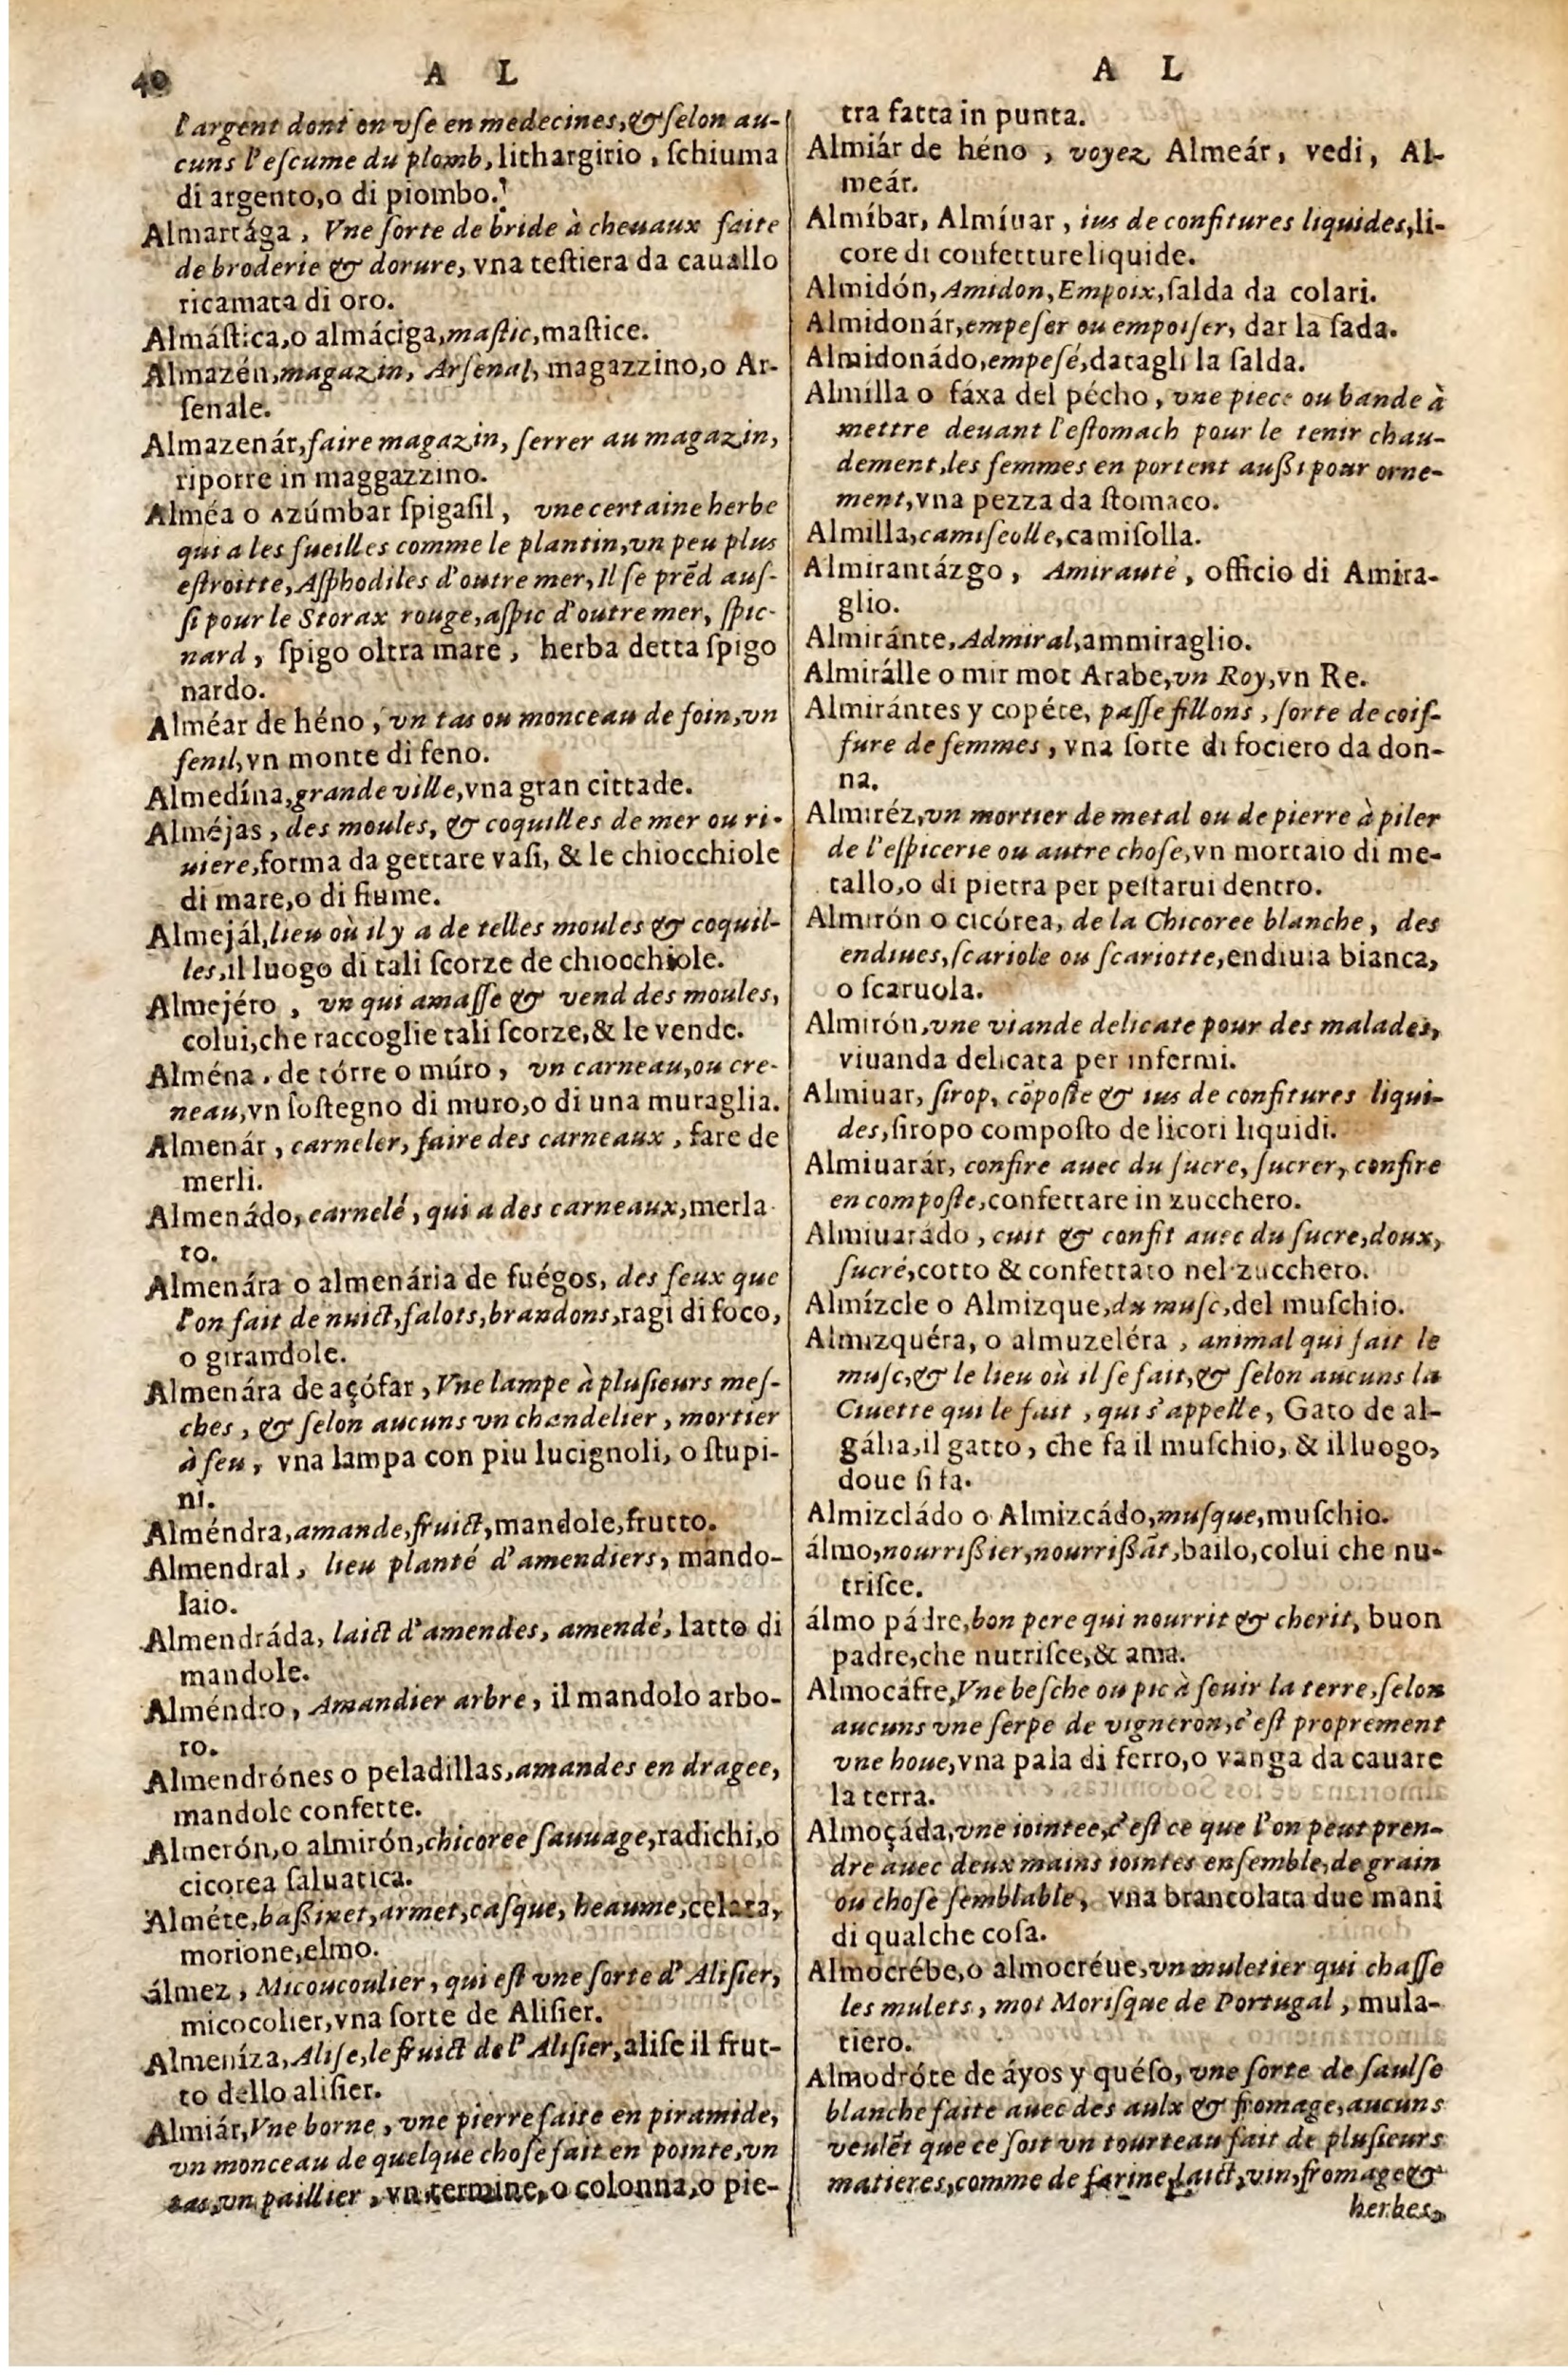 40 A L
l'argent dont on vſe en medecines, & ſelon au-
cuns l'eſcume du plomb, lithargirio, ſchiuma
di argento, o di piombo.
Almartága, Vne ſorte de bride à cheuaux faite
de broderie & dorure, vna teſtiera da cauallo
ricamata di oro.
Almáſtica, o almáciga, maſtic, maſtice.
Almazén, magazin, Arſenal, magazzino, o Ar-
ſenale.
Almazenár, faire magazin, ſerrer au magazin,
riporre in maggazzino.
Alméa o Azúmbar ſpigaſil, vne certaine herbe
qui a les fueilles comme le plantin, vn peu plus
eſtroitte, Aſphodiles d'outre mer, Il ſe prẽd auſ-
ſi pour le Storax rouge, aſpic d'outre mer, ſpic-
nard, ſpigo oltra mare, herba detta ſpigo
nardo.
Alméar de héno, vn tas ou monceau de foin, vn
fenil, vn monte di feno.
Almedína, grande ville, vna gran cittade.
Alméjas, des moules, & coquilles de mer ou ri-
uiere, forma da gettare vaſi, & le chiocchiole
di mare, o di fiume.
Almejál, lieu où il y a de telles moules & coquil-
les, il luogo di tali ſcorze de chiocchiole.
Almejéro, vn qui amaſſe & vend des moules,
colui, che raccoglie tali ſcorze, & le vende.
Alména, de tórre o múro, vn carneau, ou cre-
neau, vn ſoſtegno di muro, o di una muraglia.
Almenár, carneler, faire des carneaux, fare de
merli.
Almenádo, carnelé, qui a des carneaux, merla
to.
Almenára o almenária de fuégos, des feux que
l'on fait de nuict, falots, brandons, ragi di foco,
o girandole.
Almenára de açófar, Vne lampe à pluſieurs meſ-
ches, & ſelon aucuns vn chandelier, mortier
à feu, vna lampa con piu lucignoli, o ſtupi-
ni.
Alméndra, amande, fruict, mandole, frutto.
Almendral, lieu planté d'amendiers, mando-
laio.
Almendráda, laict d'amendes, amendé, latto di
mandole.
Alméndro, Amandier arbre, il mandolo arbo-
ro.
Almendrónes o peladillas, amandes en dragee,
mandole confette.
Almerón, o almirón, chicoree ſauuage, radichi, o
cicorea ſaluatica.
Alméte, baßinet, armet, caſque, heaume, celata,
morione, elmo.
álmez, Micoucoulier, qui eſt vne ſorte d'Aliſier,
micocolier, vna ſorte de Aliſier.
Almeníza, Aliſe, le fruict de l'Aliſier, aliſe il frut-
to dello aliſier.
Almiár, Vne borne, vne pierre faite en piramide,
vn monceau de quelque choſe fait en pointe, vn
tas, vn paillier, vn termine, o colonna, o pie-
A L
tra fatta in punta.
Almiár de héno, voyez Almeár, vedi, Al-
meár.
Almíbar, Almíuar, ius de confitures liquides, li-
core di confetture liquide.
Almidón, Amidon, Empoix, ſalda da colari.
Almidonár, empeſer ou empoiſer, dar la ſada.
Almidonádo, empeſé, datagli la ſalda.
Almilla o fáxa del pécho, vne piece ou bande à
mettre deuant l'eſtomach pour le tenir chau-
dement, les femmes en portent außi pour orne-
ment, vna pezza da ſtomaco.
Almilla, camiſeolle, camiſolla.
Almirantázgo, Amirauté, officio di Amira-
glio.
Almiránte, Admiral, ammiraglio.
Almirálle o mir mot Arabe, vn Roy, vn Re.
Almirántes y copéte, paſſefillons, ſorte de coif-
fure de femmes, vna ſorte di fociero da don-
na.
Almiréz, vn mortier de metal ou de pierre à piler
de l'eſpicerie ou autre choſe, vn mortaio di me-
tallo, o di pietra per peſtarui dentro.
Almirón o cicórea, de la Chicoree blanche, des
endiues, ſcariole ou ſcariotte, endiuia bianca,
o ſcaruola.
Almirón, vne viande delicate pour des malades,
viuanda delicata per infermi.
Almiuar, ſirop, cõpoſte & ius de confitures liqui-
des, ſiropo compoſto de licori liquidi.
Almiuarár, confire auec du ſucre, ſucrer, confire
en compoſte, confettare in zucchero.
Almiuarádo, cuit & confit auec du ſucre, doux,
ſucré, cotto & confettato nel zucchero.
Almízcle o Almizque, du muſc, del muſchio.
Almizquéra, o almuzeléra, animal qui fait le
muſc, & le lieu où il ſe fait, & ſelon aucuns la
Ciuette qui le fait, qui s'appelle, Gato de al-
gália, il gatto, che fa il muſchio, & il luogo,
doue ſi fa.
Almizcládo o Almizcádo, muſque, muſchio.
álmo, nourrißier, nourrißãt, bailo, colui che nu-
triſce.
álmo pádre, bon pere qui nourrit & cherit, buon
padre, che nutriſce, & ama.
Almocáfre, Vne beſche ou pic à fouir la terre, ſelon
aucuns vne ſerpe de vigneron, c'eſt proprement
vne houe, vna pala di ferro, o vanga da cauare
la terra.
Almoçáda, vne iointee, c'eſt ce que l'on peut pren-
dre auec deux mains iointes enſemble, de grain
ou choſe ſemblable, vna brancolata due mani
di qualche coſa.
Almocrébe, o almocréue, vn muletier qui chaſſe
les mulets, mot Moriſque de Portugal, mula-
tiero.
Almodróte de áyos y quéſo, vne ſorte de ſaulſe
blanche faite auec des aulx & fromage, aucuns
veulẽt que ce ſoit vn tourteau fait de pluſieurs
matieres, comme de farine, laict, vin, fromage &
herbes,